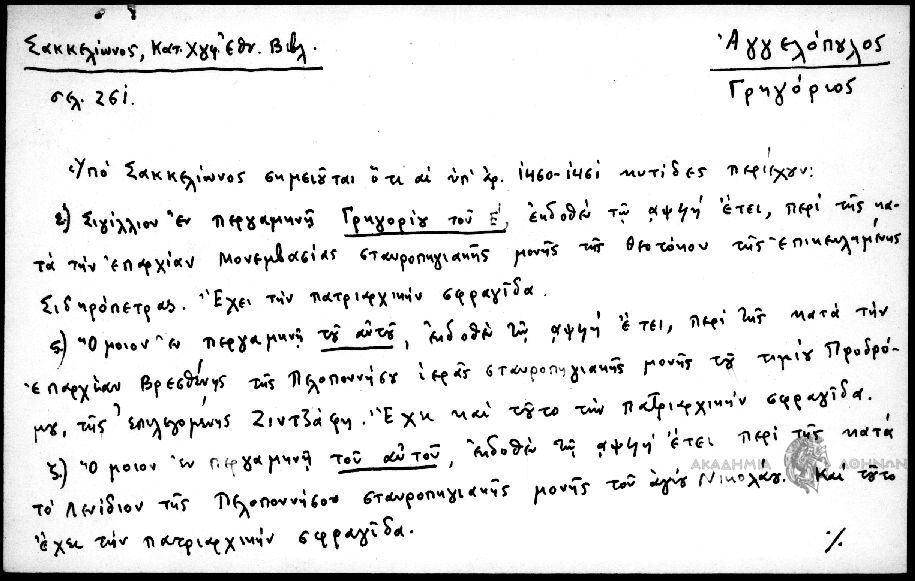 Σακκελίωνος, Κατ. Χγφ. Ἐθν. Βιβλ.
Ἀγγελόπουλος
Γρηγόριος
σελ. 261.
Ὑπό Σακκελίωνος σημειοῦται ὅτι αἱ ὑπ' ἀρ. 1460-1461 κυτίδες περιέχουν:
ε) Σιγίλλιον ἐν περγαμηνῇ Γρηγορίου τοῦ Ε΄, ἐκδοθέν τῷ ͵αψϟή ἔτει, περί τῆς κα-
τά τήν ἐπαρχίαν Μονεμβασίας σταυροπηγιακῆς μονῆς τῆς Θεοτόκου τῆς ἐπικεκλημένης
Σιδηρόπετρας. Ἔχει τήν πατριαρχικήν σφραγῖδα.
ς) Ὅμοιον ἐν περγαμηνῇ τοῦ αὐτοῦ, ἐκδοθέν τῷ ͵αψϟή ἔτει, περί τῆς κατά τήν
ἐπαρχίαν Βρεσθένης τῆς Πελοποννήσου ἱερᾶς σταυροπηγιακῆς μονῆς τοῦ τιμίου Προδρό-
μου, τῆς ἐπιλεγομένης Ζιντζάφη. Ἔχει καί τοῦτο τήν πατριαρχικήν σφραγῖδα.
ζ) Ὅμοιον ἐν περγαμηνῇ τοῦ αὐτοῦ, ἐκδοθέν τῷ ͵αψϟή ἔτει περί τῆς κατά
τό Λενίδιον τῆς Πελοποννήσου σταυροπηγιακῆς μονῆς τοῦ ἁγίου Νικολάου. Καί τοῦτο
ἔχει τήν πατριαρχικήν σφραγῖδα.
./.
ΑΚΑΔΗΜΙΑ ΑΘΗΝΩΝ